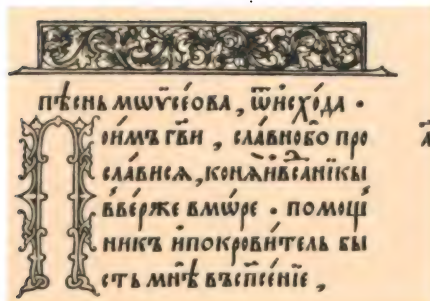 пѣснь мѡѷсе́ова , ѿисхо́да ·
Пои́мъ гв҃и , сла́внобо̀ про
сла́висѧ , конѧ̀ и҆всаⷣникы
вве́рже вмѡ́ре · помощⷩ҇и
никъ и҆покрови́тель бы
сть мнѣ̀ въспⷭ҇сенїе ,